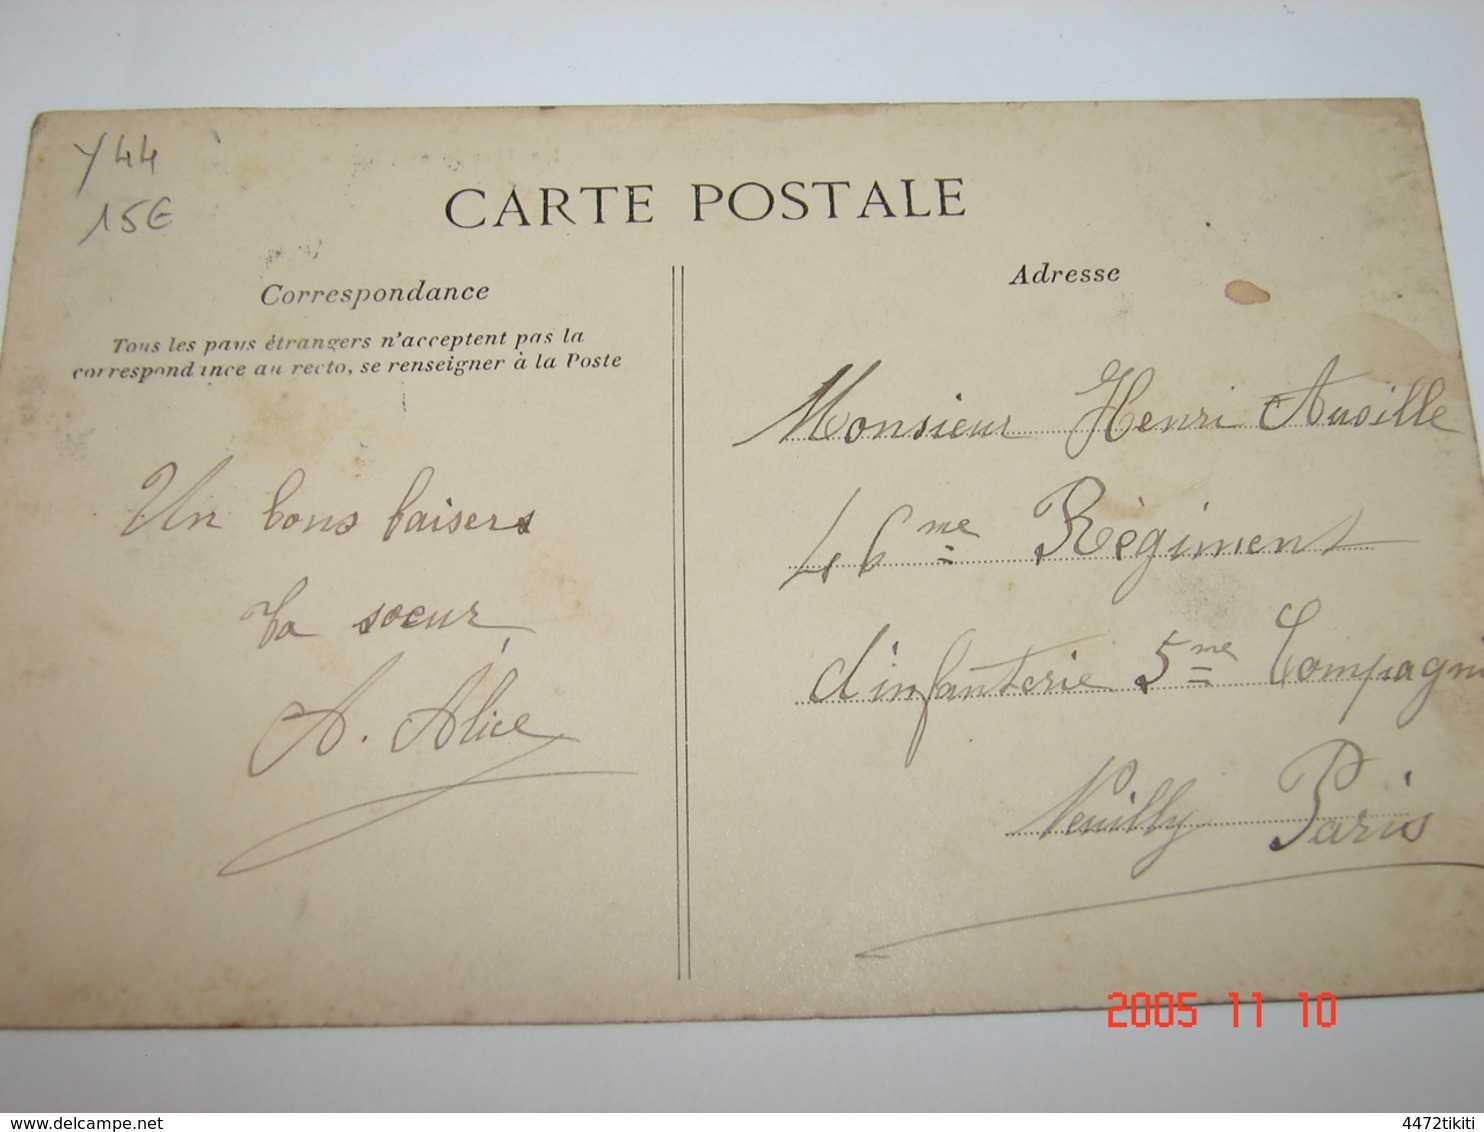 Y44
15€
CARTE POSTALE
Correspondance
Tous les pays étrangers n'acceptent pas la
correspondance au recto, se renseigner à la Poste
Un bons baisers
ta soeur
A. Alice
Adresse
Monsieur Henri
46me Régiment
d'infanterie 5me Compagni
Neuilly Paris
2005 11 10
www.delcampe.net
4472tikiti